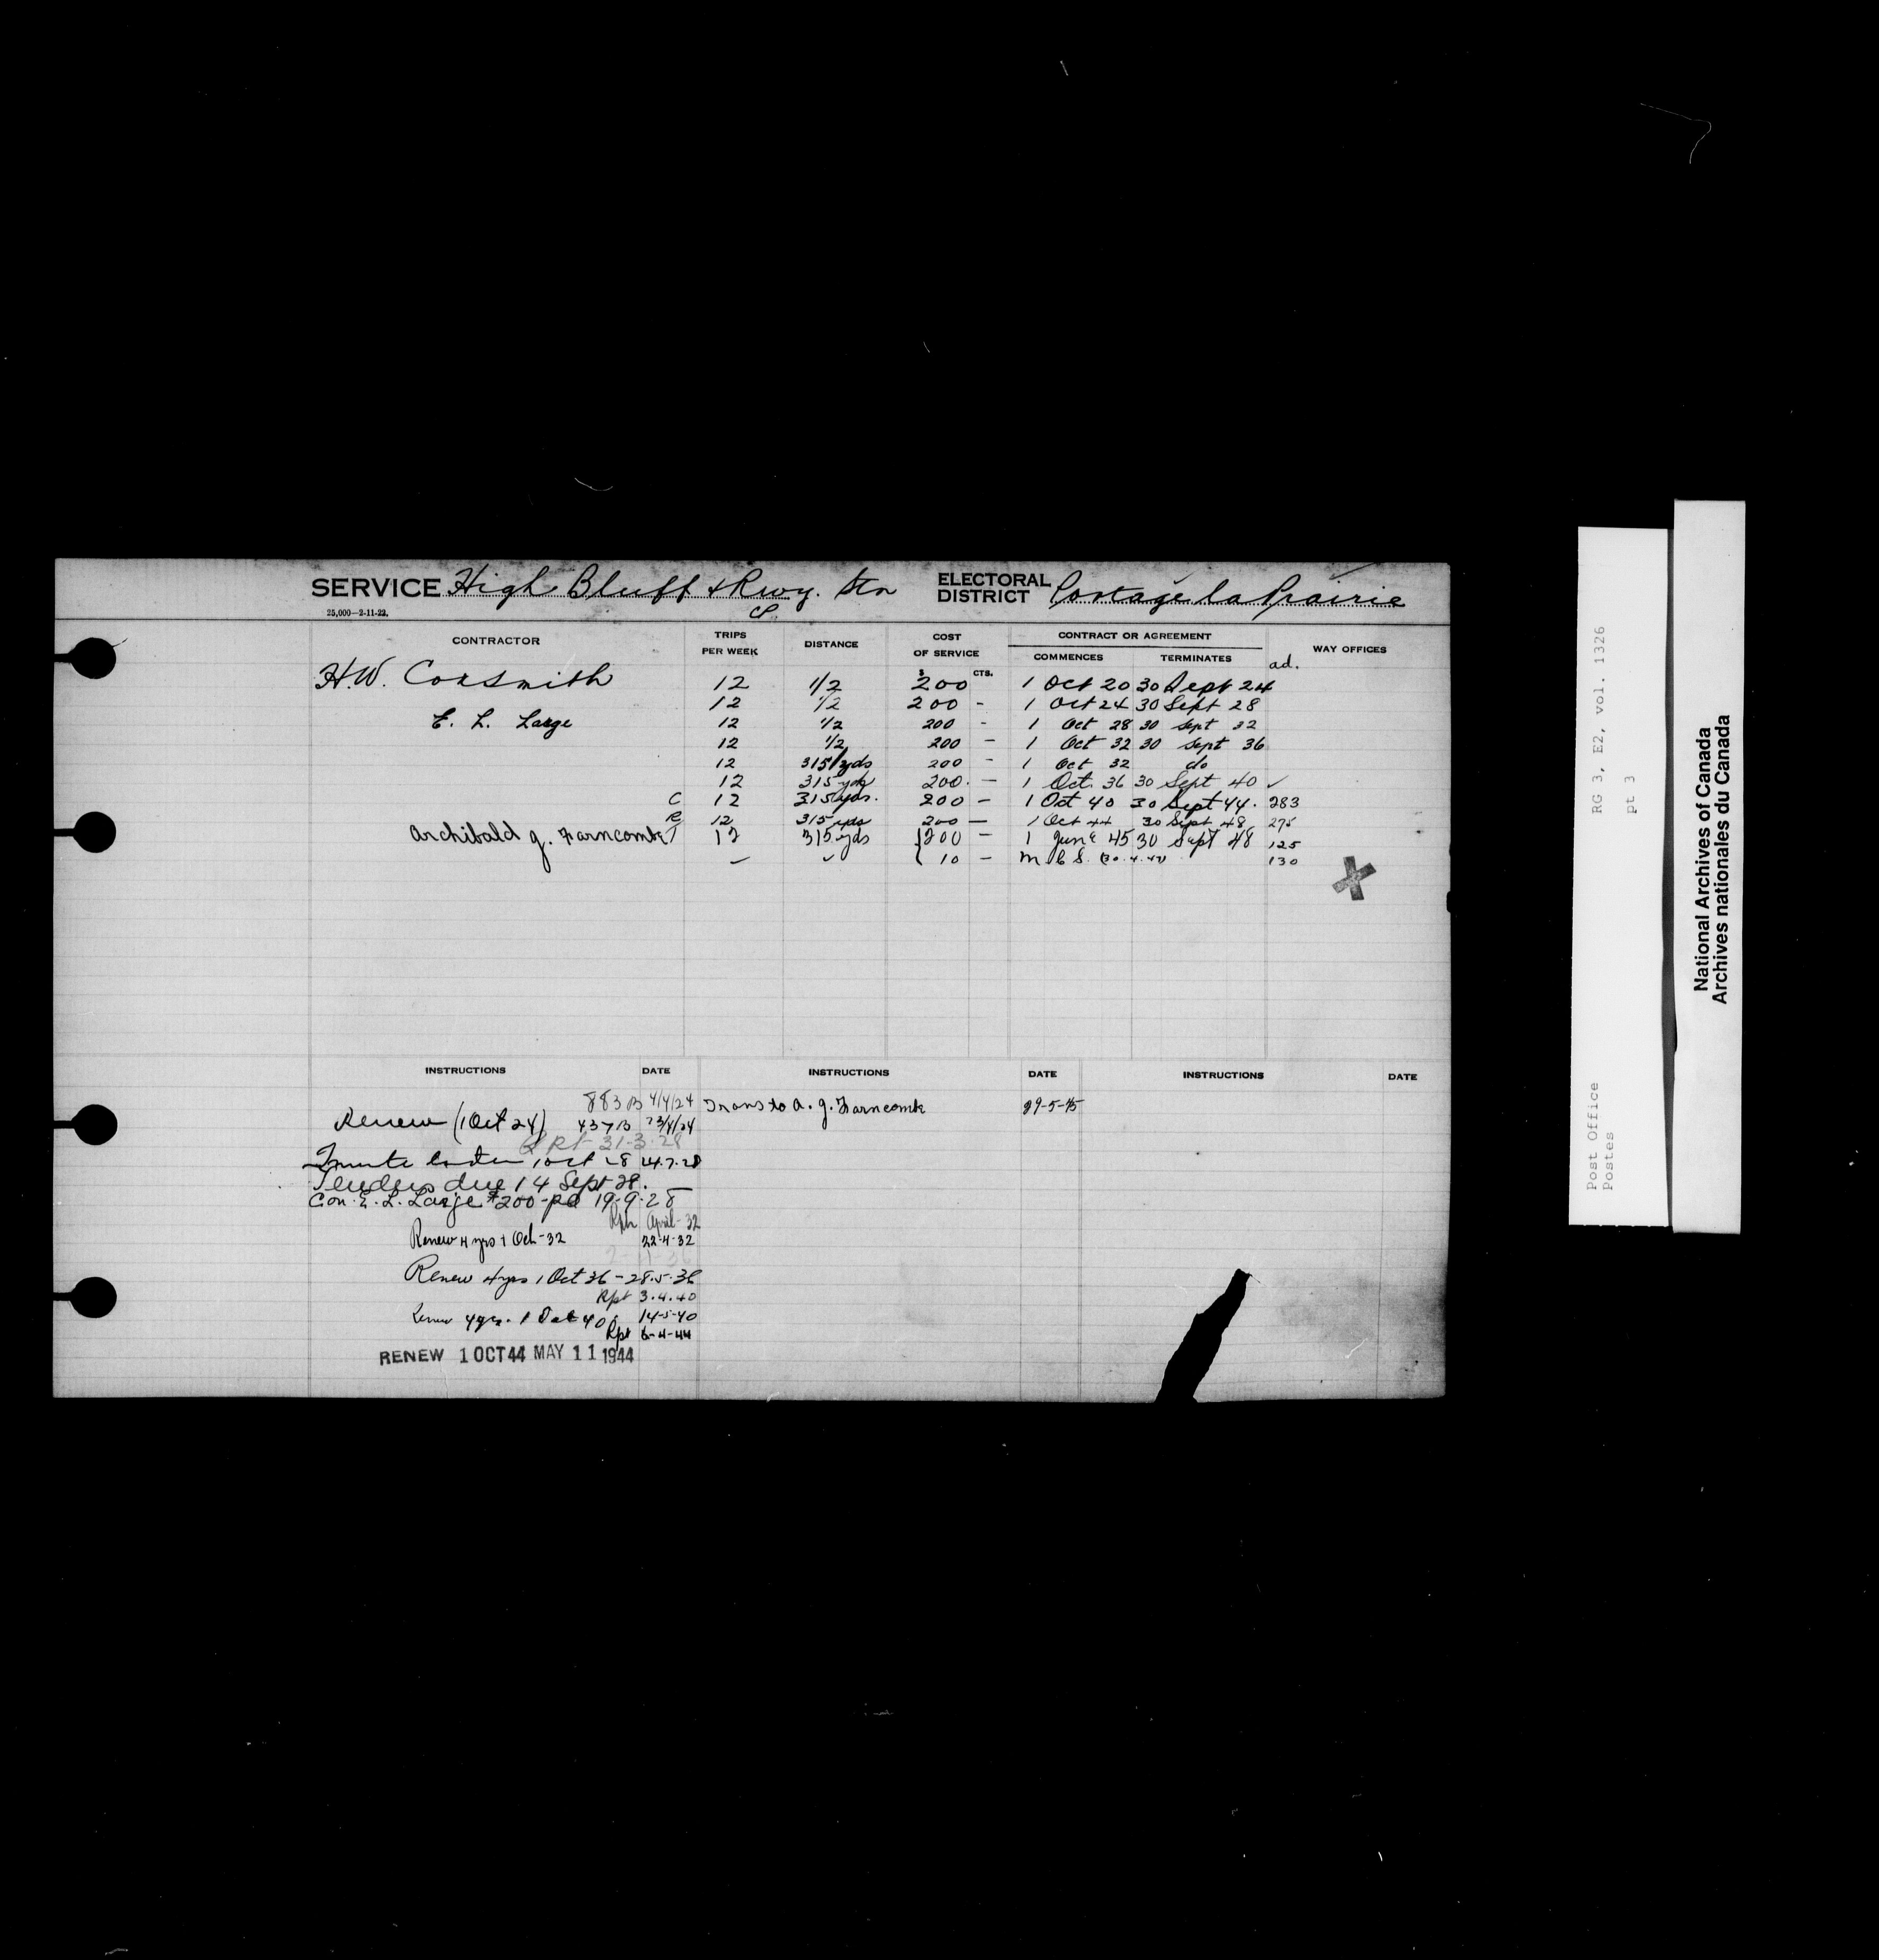 SERVICE High Bluff & Rwy. Stn ELECTORAL DISTRICT Portage la Prairie
25,000—2-11-22. CP.
CONTRACTOR TRIPS PER WEEK DISTANCE COST OF SERVICE CONTRACT OR AGREEMENT COMMENCES TERMINATES WAY OFFICES
$ CTS. ad.
H.W. Coxsmith 12 1/2 200 1 Oct 20 30 Sept 24
12 1/2 200 - 1 Oct 24 30 Sept 28
E. L. Large 12 1/2 200 - 1 Oct 28 30 Sept 32
12 1/2 200 - 1 Oct 32 30 Sept 36
12 315 yds 200 - 1 Oct 32 do
12 315 yds 200. - 1 Oct. 36 30 Sept 40 ✓
C 12 315 yds. 200 - 1 Oct 40 30 Sept 44. 283
R 12 315 yds 200 — 1 Oct 44 30 Sept 48 275
Archibald G. Farncombe T 12 315 yds 200 - 1 June 45 30 Sept 48 125
10 - M C S. (30.4.47) 130
INSTRUCTIONS DATE INSTRUCTIONS DATE INSTRUCTIONS DATE
883 B 4/4/24 Trans to A. G. Farncombe 29-5-45
Renew (1 Oct 24) 437 B 23/4/24
Rpt 31-3-28
1 Oct 28 24.7.28
Tenders due 14 Sept 28.
Con. E. L. Large $200 - pd 19-9-28
Rpt April-32
Renew 4 yrs 1 Oct-32 22-4-32
Renew 4 yrs 1 Oct 36 - 28.5.36
Rpt 3.4.40
Renew 4 yrs. 1 Oct 40 14-5-40
Rpt 6-4-44
RENEW 1 OCT 44 MAY 11 1944
RG 3, E2, vol. 1326
pt 3
Post Office
Postes
National Archives of Canada
Archives nationales du Canada